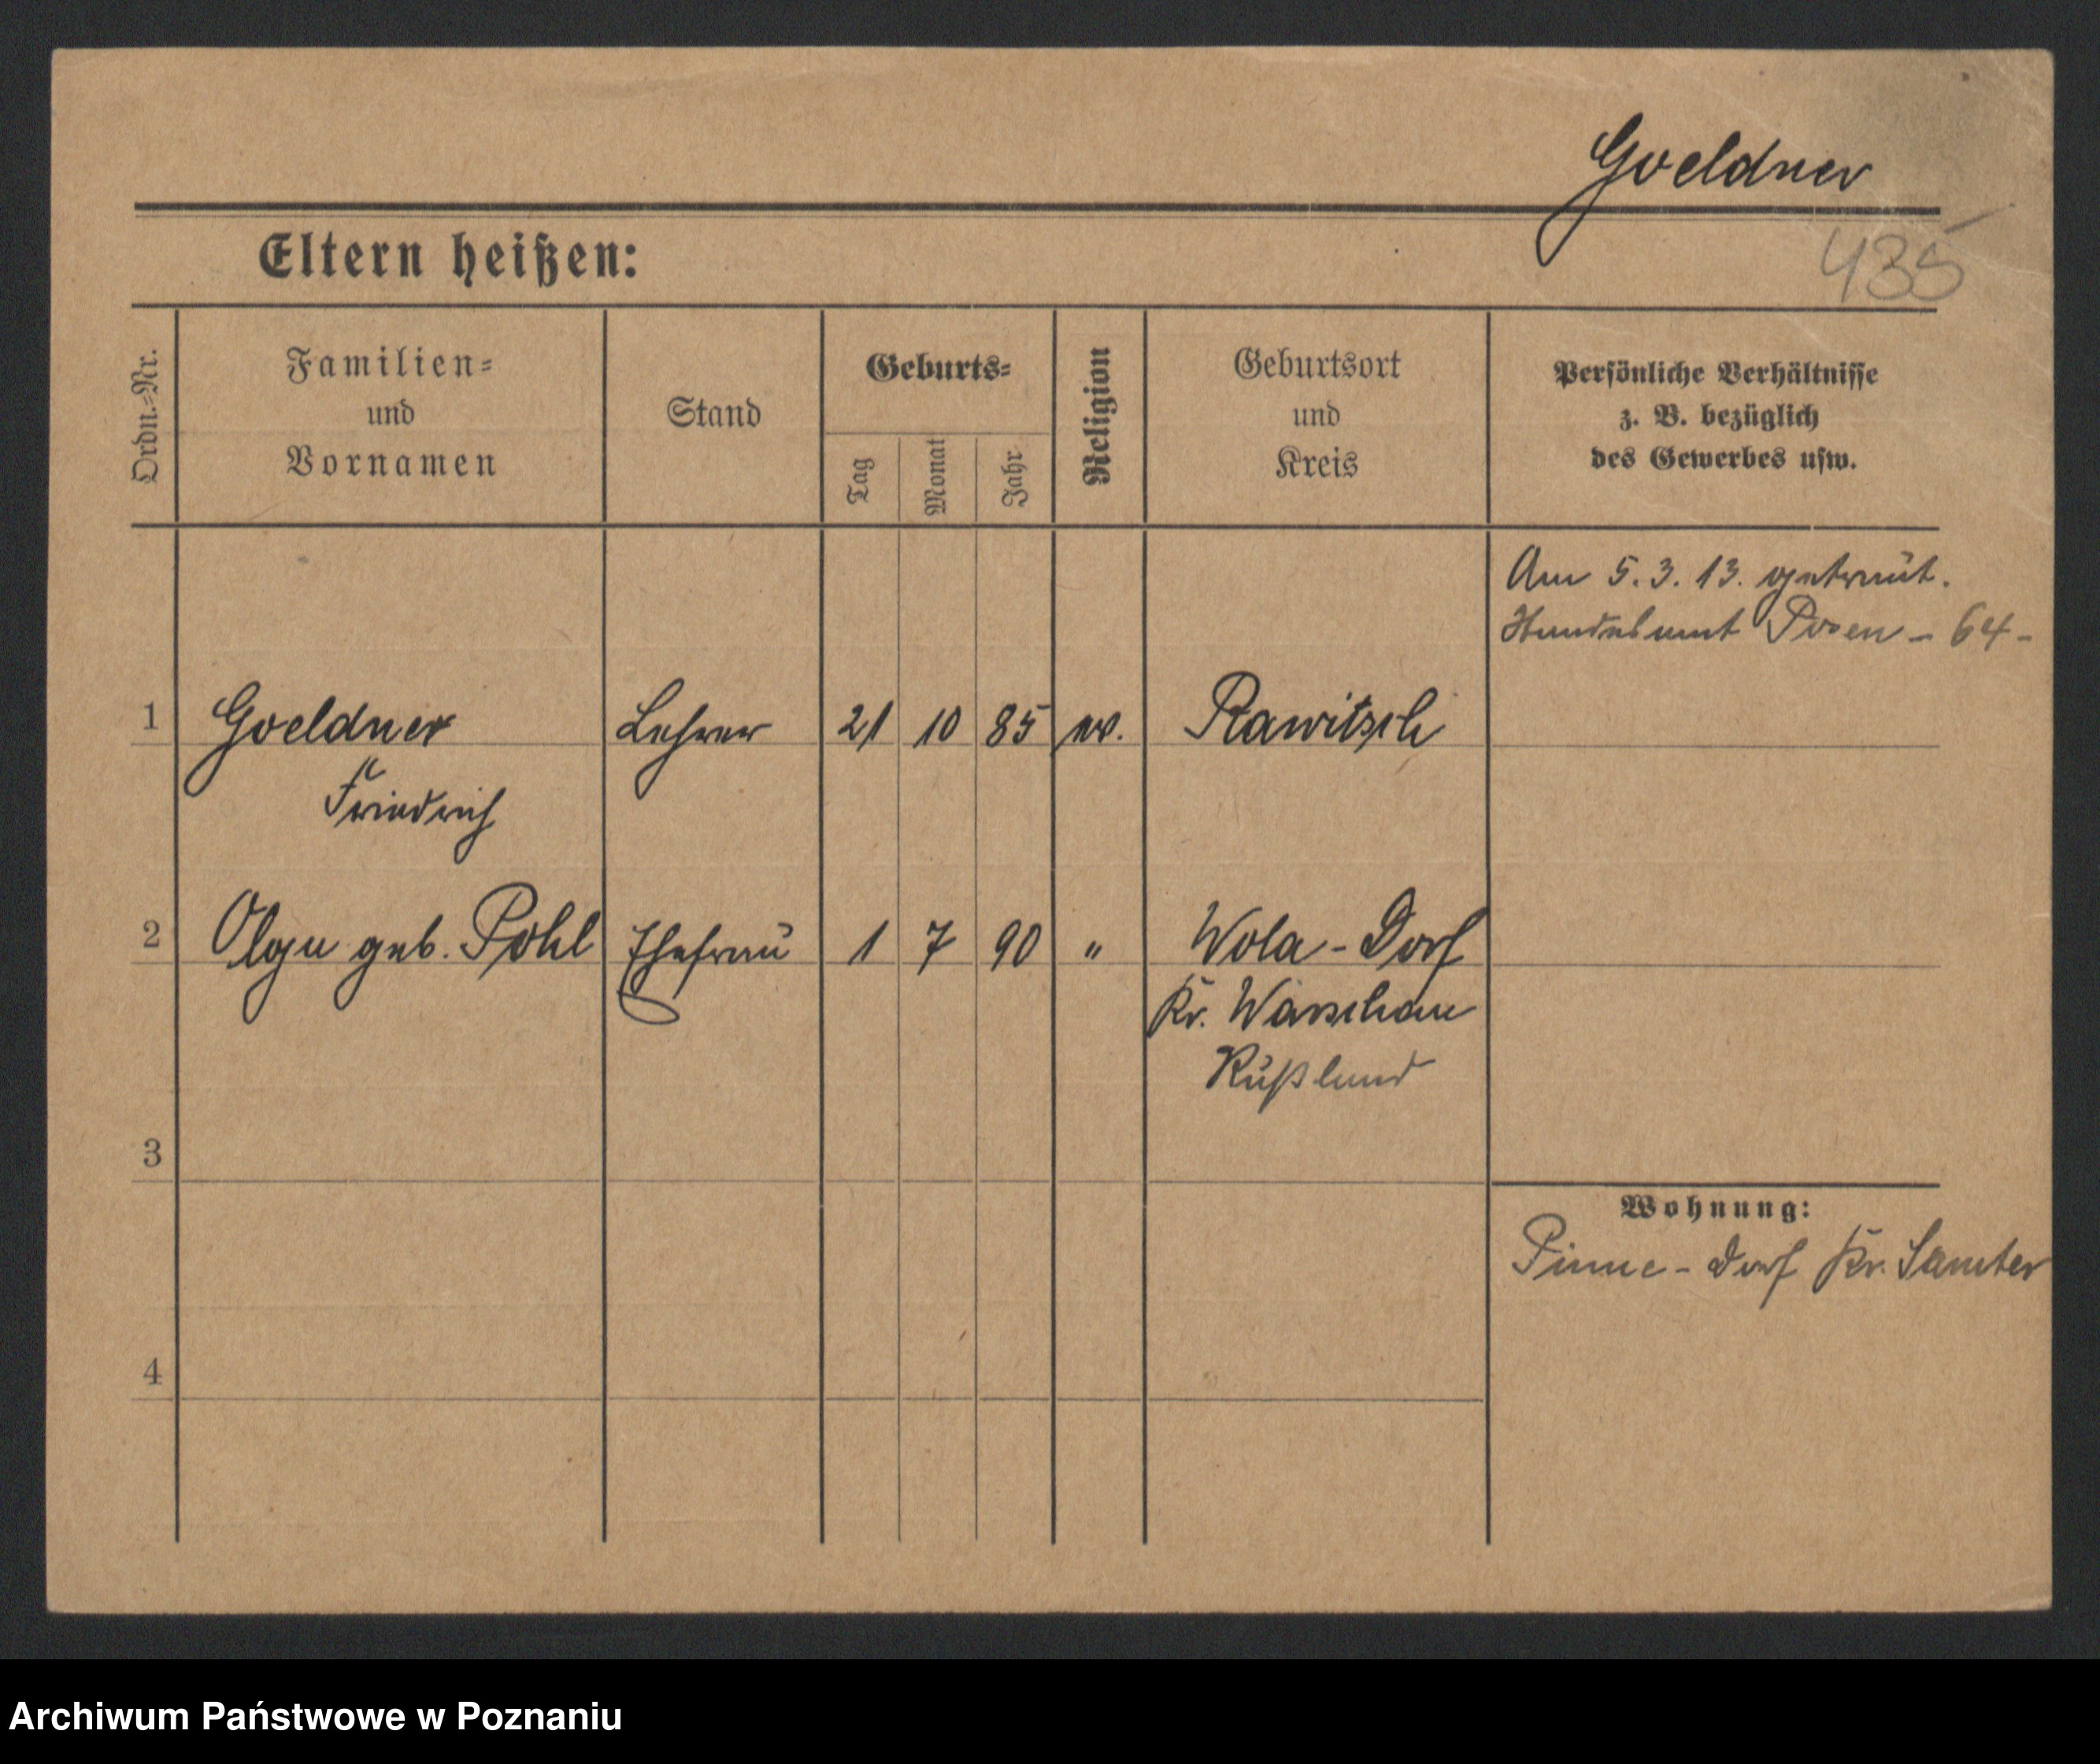 Goeldner
435
Eltern heißen:
Ordn.-Nr.
Familien-
und
Vornamen
Stand
Geburts-
Tag
Monat
Jahr
Religion
Geburtsort
und
Kreis
Persönliche Verhältnisse
z. B. bezüglich
des Gewerbes usw.
Am 5.3.13. getraut.
Standesamt Posen - 64 -
1 Goeldner Lehrer 21 10 85 ev. Rawitsch
Friedrich
2 Olga geb. Pohl Ehefrau 1 7 90 " Wola-Dorf
Kr. Warschau
Rußland
3
Wohnung:
Pinne-Dorf Kr. Samter
4
Archiwum Państwowe w Poznaniu